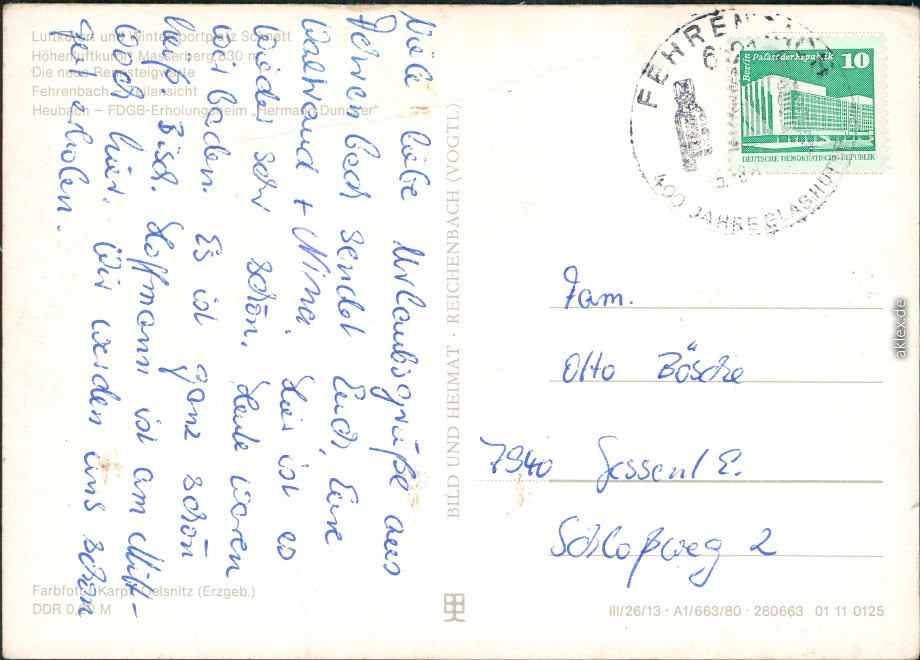 Luftkurort und Wintersportplatz Schnett
Höhenluftkurort Masserberg 830 m
Die neue Rennsteigwarte
Fehrenbach – Teilansicht
Heubach – FDGB-Erholungsheim „Hermann Duncker"
Viele liebe Urlaubsgrüße aus
Fehrenbach sendet Euch, Eure
Waltraud + Nina. Hier ist es
wieder sehr schön. Heute waren
wir baden. Es ist ganz schön
heiß. Bisch. Hoffmann ist am Mitt-
woch hier. Wir werden uns schön
gut erholen.
Farbfoto: Karpf, Oelsnitz (Erzgeb.)
DDR 0, M
BILD UND HEIMAT · REICHENBACH (VOGTL)
FEHREN
400 JAHRE GLASHÜT
Berlin Palast der Republik 10
DEUTSCHE DEMOKRATISCHE REPUBLIK
Fam.
Otto Bösche
7940 Jessen/E.
Schloßweg 2
III/26/13 · A1/663/80 · 280663 01 11 0125
aklex.de